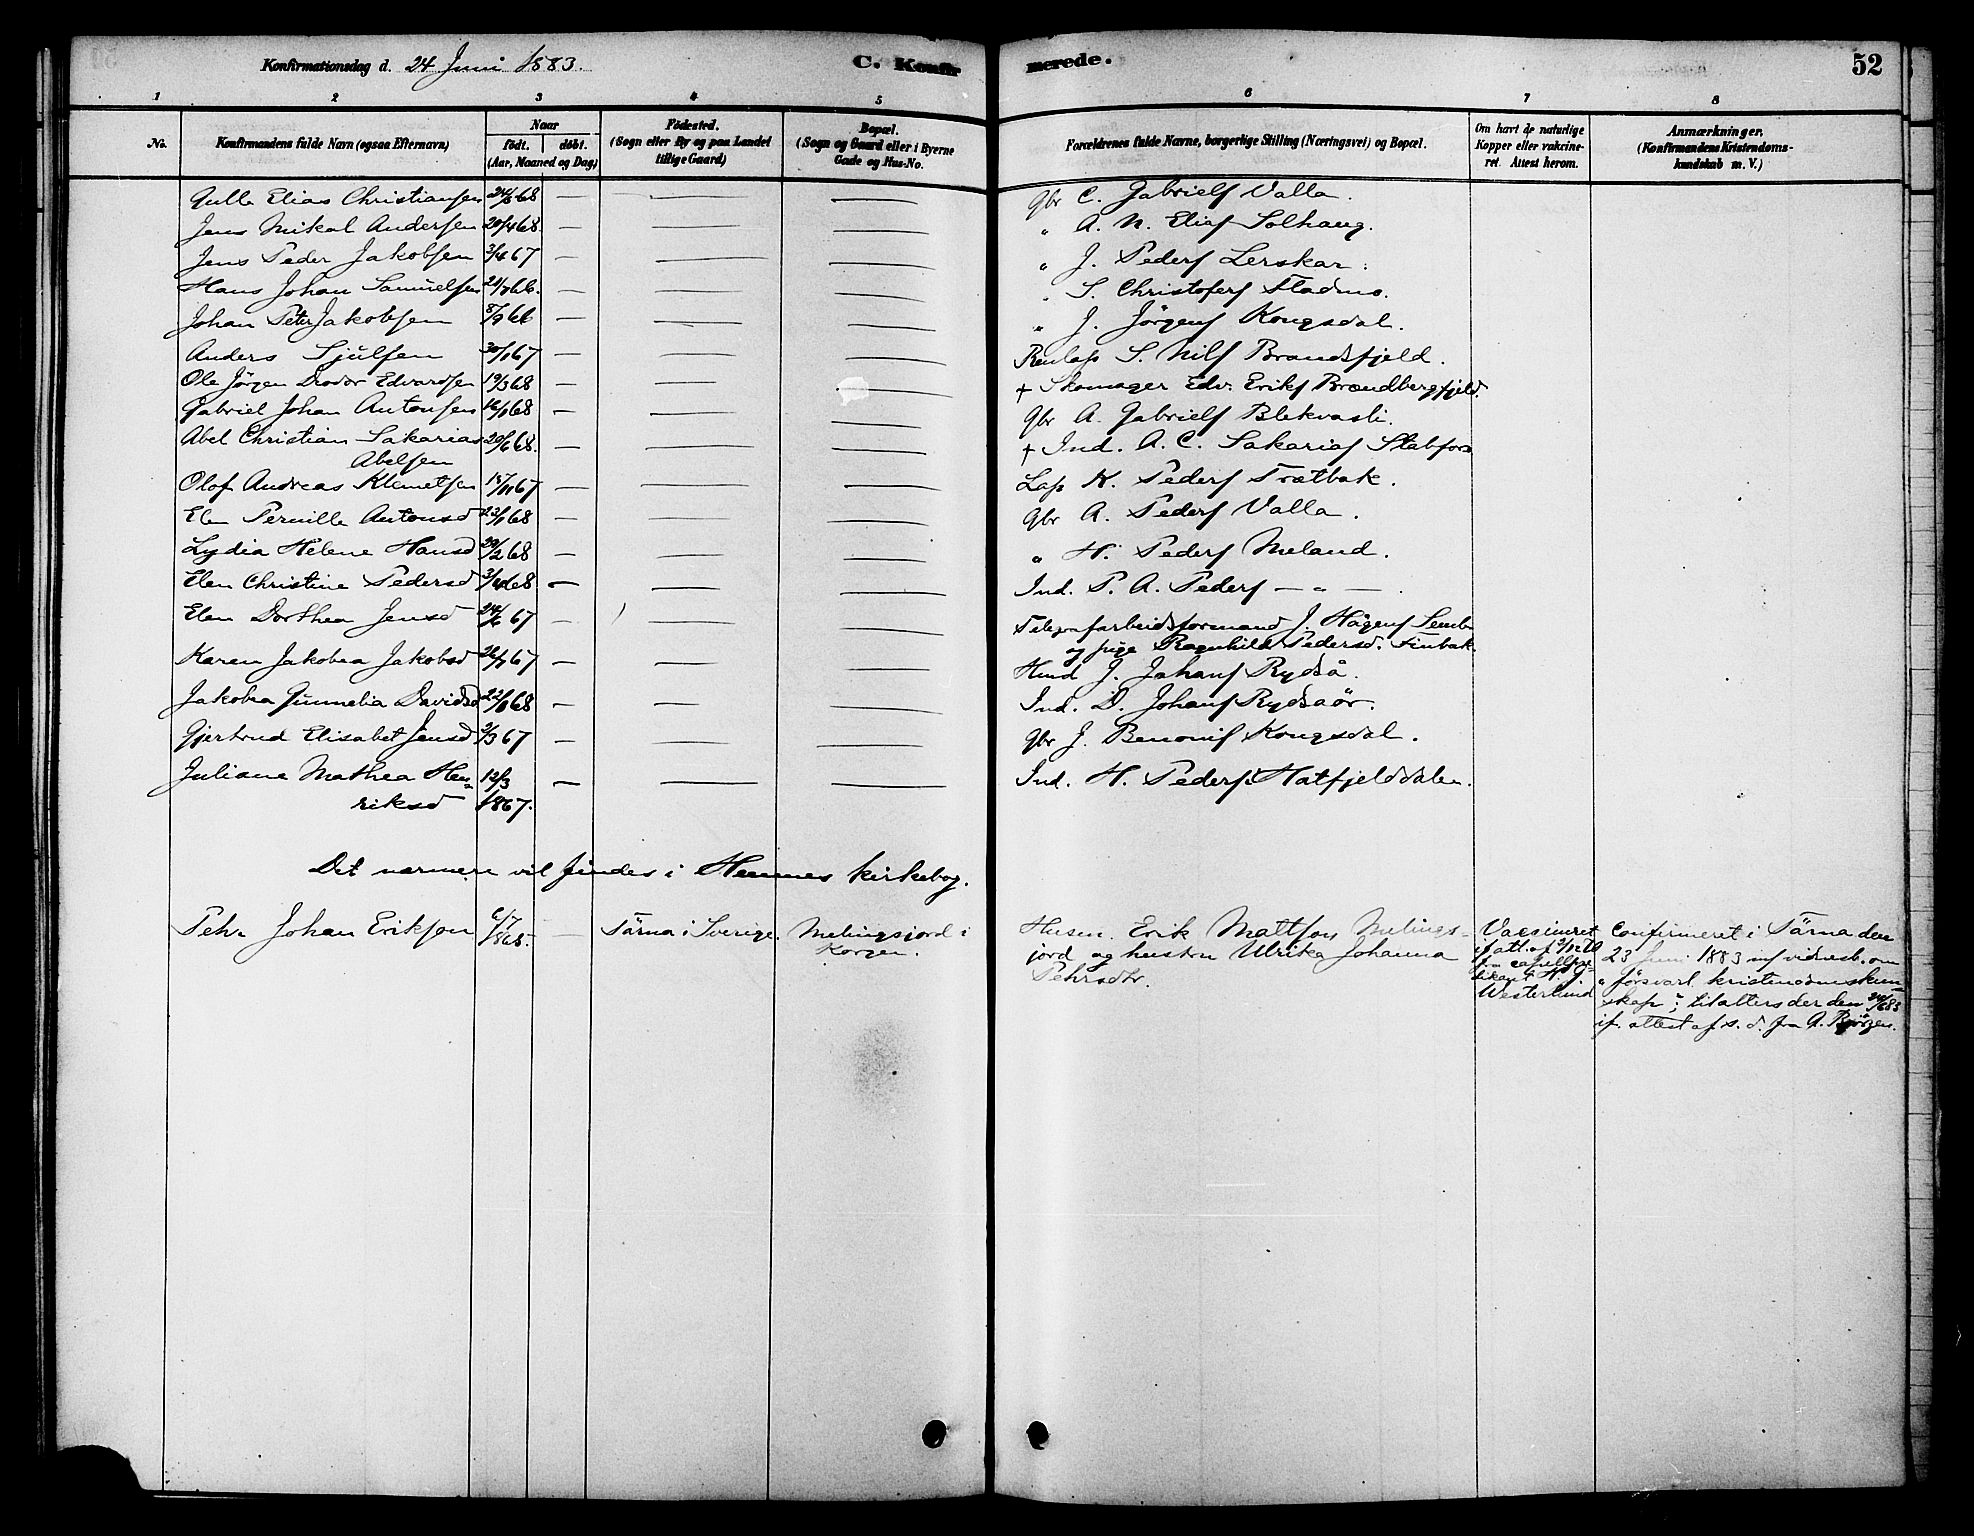 Konfirmationsdag d. 24 Juni 1883.
C. Konfirmerede.
52
1 2 3 4 5 6 7 8
No.
Konfirmandens fulde Navn (ogsaa Efternavn)
Naar
født. døbt.
(Aar, Maaned og Dag)
Fødested.
(Sogn eller By og paa Landet
tillige Gaard)
Bopæl.
(Sogn og Gaard eller i Byerne
Gade og Hus-No.
Forældrenes fulde Navne, borgerlige Stilling (Næringsvei) og Bopæl.
Om havt de naturlige
Kopper eller vakcine-
ret. Attest herom.
Anmærkninger.
(Konfirmandens Kristendoms-
kundskab m. V.)
Elias Christiansen 68 — — — Gbr C. Gabrielf Valla.
Jens Mikal Andersen 20/4 68 — — — " A. N. Eliaf Solhaug.
Jens Peder Jakobsen 3/4 67 — — — " J. Pederf Lerskar.
Hans Johan Samuelsen 66. — — — " S. Christoferf Stadmo.
Johan Peter Jakobsen 8/9 66 — — — " J. Jörgenf Kongsdal.
Anders Sjulsen 30/1 67 — — — Renlap S. Nilf Brandsfjeld.
Ole Jörgen Edvardsen 19/3 68 — — — † Skomager Edv. Erikf Brændbergfjeld.
Gabriel Johan Antonsen 16/1 68 — — — Gbr A. Gabrielf Blekvasli.
Abel Christian Sakarias 20/6 68. — — — † Ind. A. C. Sakariaf Stabfors
Abelsen
Olof Andreas Klemetsen 67 — — — Lap K. Pederf Tætbak.
Elen Pernille Antonsd 68 — — — Gbr A. Pederf Valla.
Lydia Helene Hansd 29/2 68 — — — " H. Pederf Meland.
Elen Christine Pedersd 3/4 68 — — — Ind. P. A. Pederf — " —.
Elen Dorthea Jensd 24/6 67 — — Telegrafarbeidsformand J. Hågenf
og pige Ragnhild Pedersd. Finbak
Karen Jakobea Jakobsd 26/7 67 — — — Hmd J. Johanf Rydså.
Jakobea Gunnelia Davidsd 22/1 68 — — — Ind. D. Johanf Rydsaör.
Gjertrud Elisabet Jensd 2/3 67 — — — Gbr J. Benonif Kongsdal.
Juliane Mathea Hen- 12/3 — — — Ind. H. Pederf Hatfjelddalen.
riksd 1867.
Det nærmere vil findes i Hemnes kirkebog.
Pehr Johan Erikson 6/7 1868. — Tärna i Sverige. Melingsjord i
Korgen.
Husm. Erik Mattson Melings-
jord og hustru Ulrika Johanna
Pehrsdtr.
Vaccineret
if. att. af
fra
H. J.
Westerlund
Confirmeret i Tärna den
23 Juni 1883 m/ vidnesb. om
"försvarl. kristendomskun-
skap"; til alters der den 24/6 83
if. attest af s. d. fra A. Björzen.